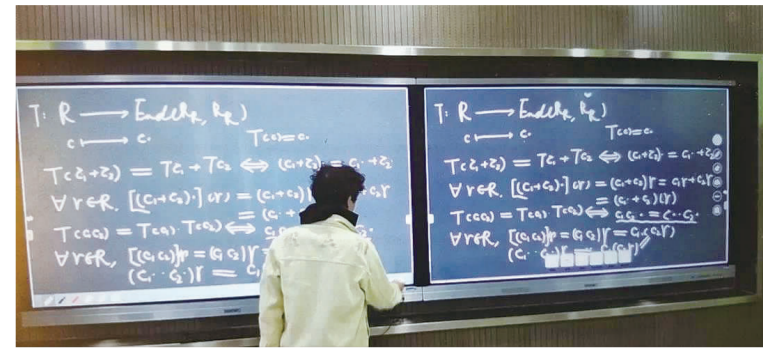 T: R ⟶ End(R_R, R_R)
c ⟼ c· T(c)=c·
T(c₁+c₂) = Tc₁+Tc₂ ⟺ (c₁+c₂)· = c₁·+c₂·
∀ r∈R, [(c₁+c₂)·](r) = (c₁+c₂)r
T(c₁c₂) = T(c₁) T(c₂) ⟺
∀ r∈R, [(c₁c₂)·]r = (c₁c₂)r =
(c₁·c₂·)r = c₁
T: R ⟶ End(R_R, R_R)
c ⟼ c· T(c)=c·
T(c₁+c₂) = Tc₁+Tc₂ ⟺ (c₁+c₂)· = c₁·+c₂·
∀ r∈R, [(c₁+c₂)·](r) = (c₁+c₂)r = c₁r+c₂r
= (c₁·+c₂·)(r)
T(c₁c₂) = T(c₁)·T(c₂) ⟺ c₁c₂· = c₁·c₂·
∀ r∈R, [(c₁c₂)·]r = (c₁c₂)r = c₁(c₂r)